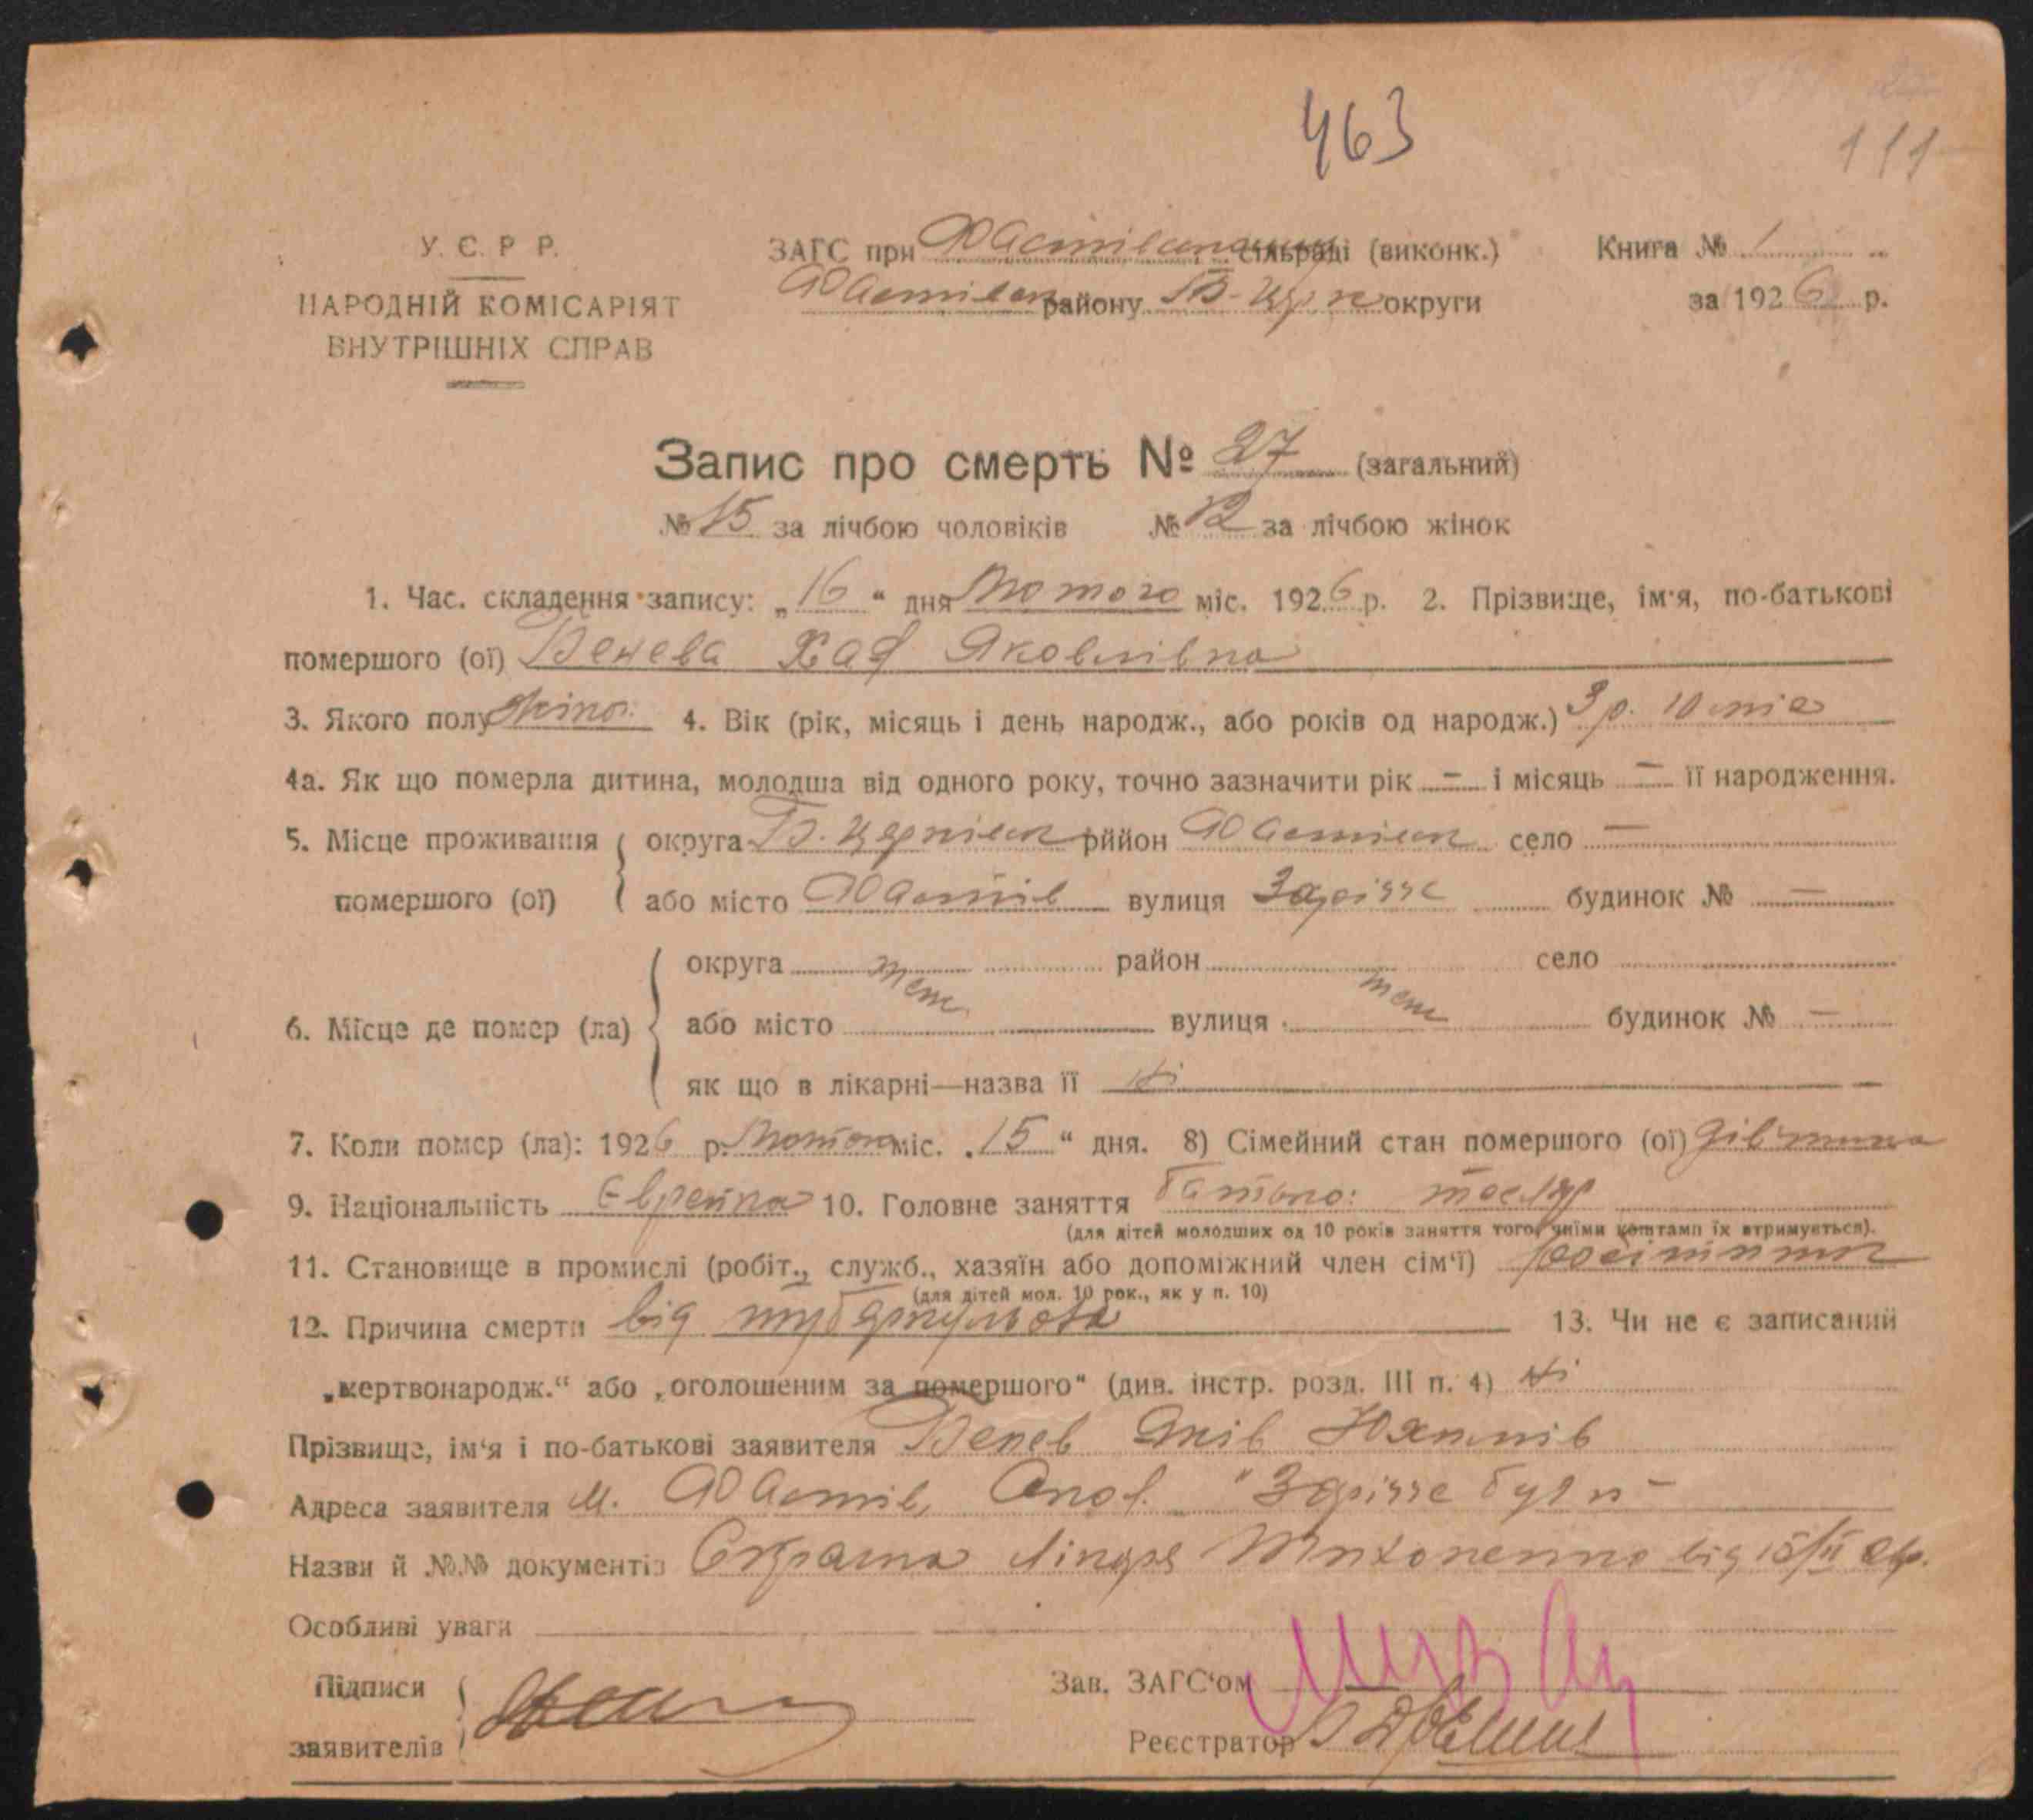 463
111
У. С. Р Р.
НАРОДНІЙ КОМІСАРІЯТ
ВНУТРІШНІХ СПРАВ
ЗАГС при сільраді (виконк.)
району Б-Церк округи
Книга № 1
за 1926 р.
Запис про смерть № 27 (загальний)
№ 15 за лічбою чоловіків № 12 за лічбою жінок
1. Час. складення запису: „16“ дня Лютого міс. 1926 р. 2. Прізвище, ім'я, по-батькові
помершого (ої) Яковлівна
3. Якого полу жіноч. 4. Вік (рік, місяць і день народж., або років од народж.) 3 р. 10 міс
4а. Як що померла дитина, молодша від одного року, точно зазначити рік — і місяць — її народження.
5. Місце проживання округа Б. Церківськ рййон Фастівськ село —
помершого (ої) або місто Фастів вулиця Заріччє будинок № —
6. Місце де помер (ла) округа теж район теж село
або місто вулиця будинок № —
як що в лікарні—назва її Ні
7. Коли помер (ла): 1926 р. Лютого міс. „15“ дня. 8) Сімейний стан помершого (ої) дівчина
9. Національність Єврейка 10. Головне заняття батько: тесляр
(для дітей молодших од 10 років заняття того, чиїми коштами їх втримується).
11. Становище в промислі (робіт., служб., хазяїн або допоміжний член сім'ї) робітник
(для дітей мол. 10 рок., як у п. 10)
12. Причина смерти від туберкульоза 13. Чи не є записаний
„мертвонародж.“ або „оголошеним за помершого“ (див. інстр. розд. III п. 4) Ні
Прізвище, ім'я і по-батькові заявителя Яків
Адреса заявителя м. Фастів, Заріччє буд №-
Назви й №№ документів Лікаря від 15/II
Особливі уваги
Підписи
заявителів
Зав. ЗАГС'ом
Реєстратор